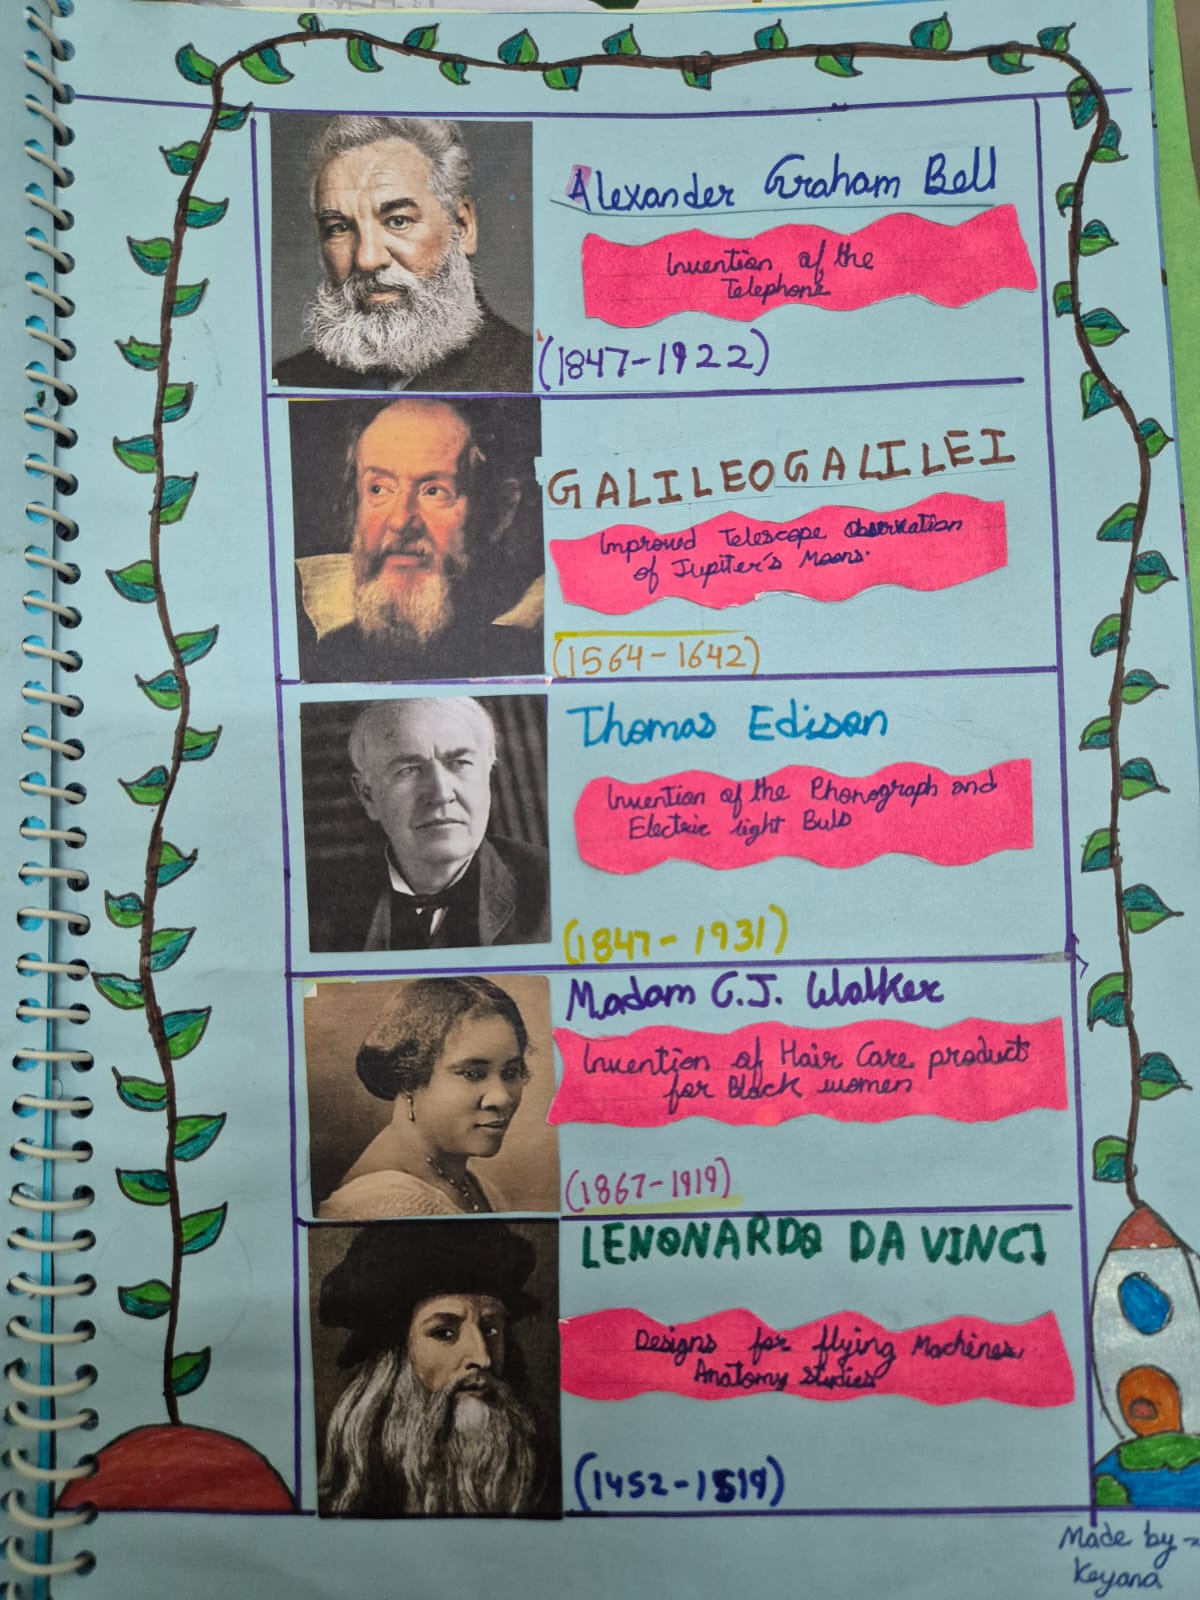 Alexander Graham Bell
Invention of the
Telephone
(1847-1922)
GALILEO GALILEI
Improved Telescope Observation
of Jupiter's Moons.
(1564-1642)
Thomas Edison
Invention of the Phonograph and
Electric light Bulb
(1847-1931)
Madam C.J. Walker
Invention of Hair Care product
for Black women
(1867-1919)
LENONARDO DA VINCI
Designs for flying Machines,
Anatomy studies
(1452-1519)
Made by -
Keyana